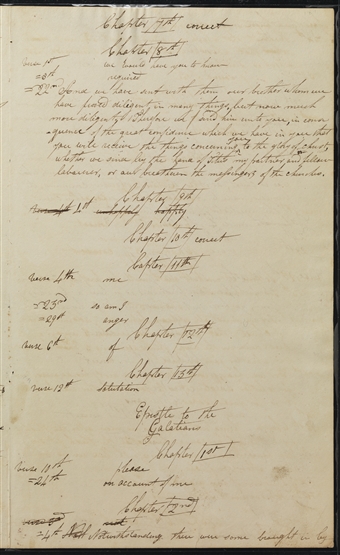 Chapter 7th correct
Chapter 8th
verse 1st we would have you to know
=3rd required
=22nd And we have sent with them our brother whom we
have proved diligent in many things, but now much
more diligent. Therefore we send him unto you, in conse
quence of the great confidence which we have in you that
you will receive the things concerning you, to the glory of Christ
whether we send by the hand of Titus my partner, and fellow
laborer, or our bretheren the messingers of the churches.
Chapter 9th
verse 4th 1st
Chapter 10th correct
Capter 11th
verse 4th me
=23rd so am I
=29th anger
Chapter 12th
verse 6th of
Chapter 13th
verse 12th salutation
Epistle to the
Galatians
Chapter 1st
verse 10th please
=24th on account of me
Chapter 2nd
=4th Notwithstanding there were some brought in by